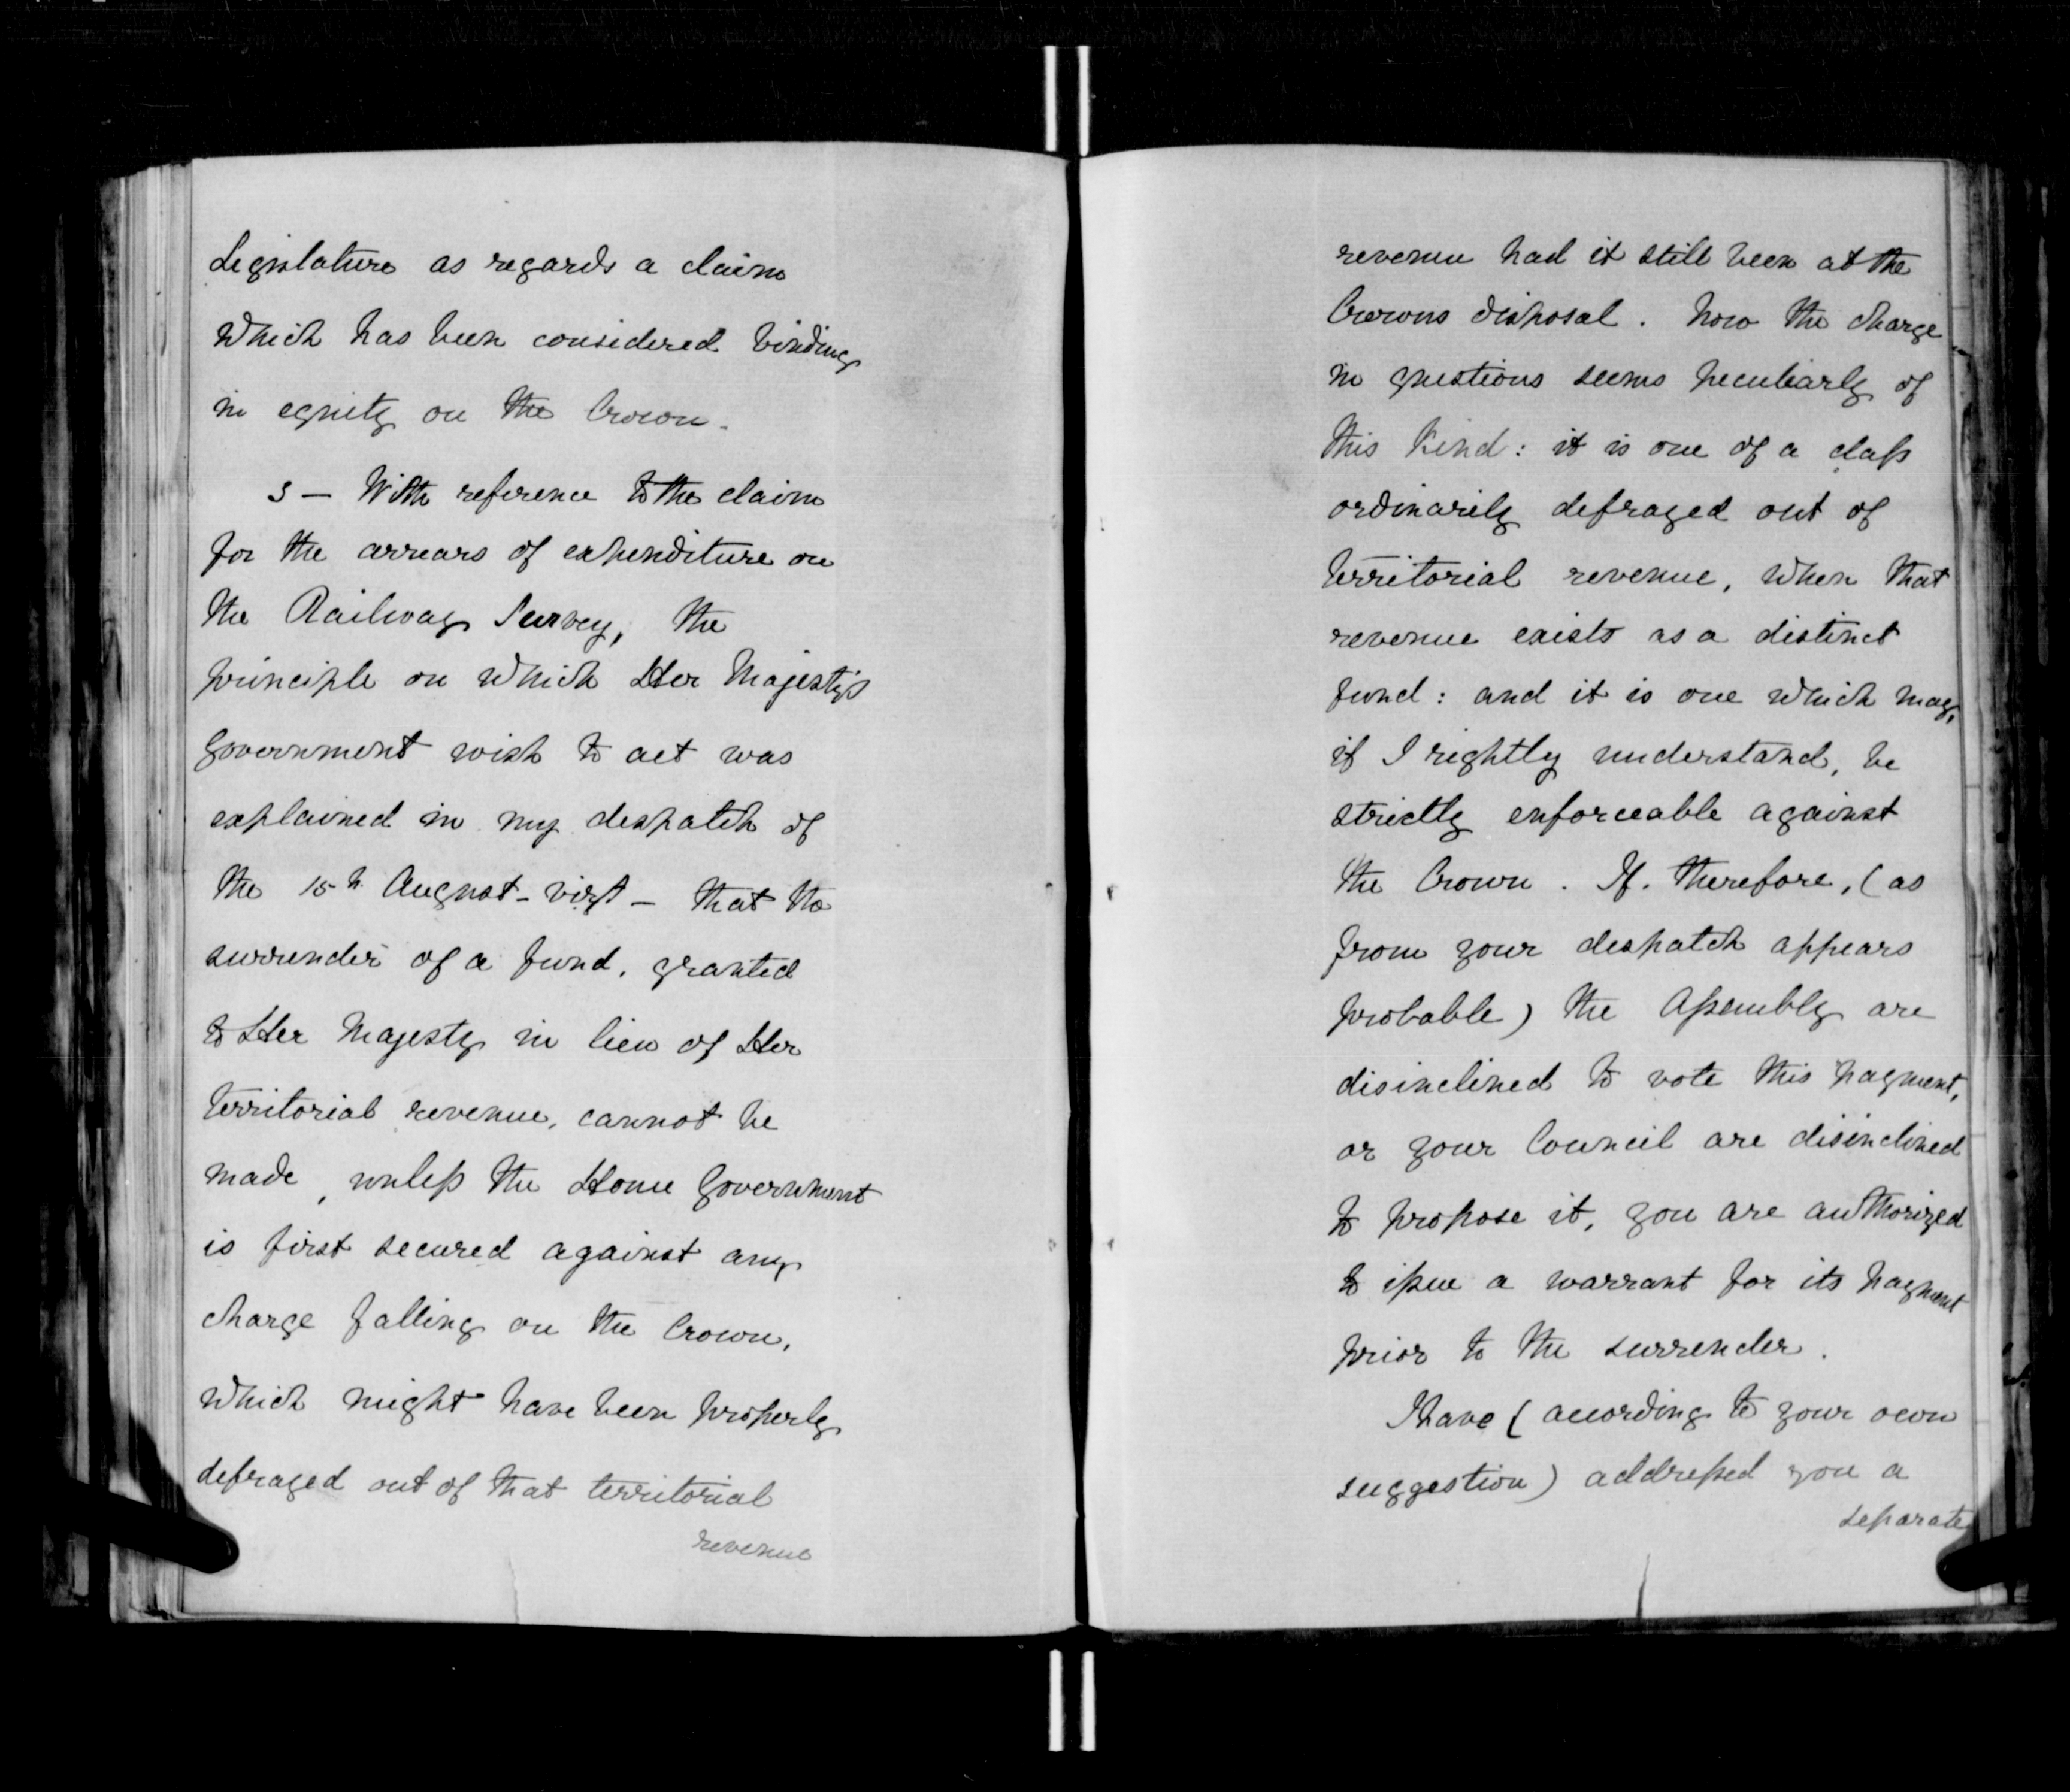 Legislature as regards a claim
which has been considered binding
in equity on the Crown.
3 — With reference to the claim
for the arrears of expenditure on
the Railway Survey, the
principle on which Her Majesty's
Government wish to act was
explained in my despatch of
the 15th August - vizt - that the
surrender of a fund, granted
to Her Majesty in lieu of Her
territorial revenue, cannot be
made, unless the Home Government
is first secured against any
charge falling on the Crown,
which might have been properly
defrayed out of that territorial
revenue
revenue had it still been at the
Crowns disposal. Now the charge
in questions seems peculiarly of
this kind: it is one of a class
ordinarily defrayed out of
territorial revenue, when that
revenue exists as a distinct
fund: and it is one which may,
if I rightly understand, be
strictly enforceable against
the Crown. If. therefore, (as
from your despatch appears
probable) the Assembly are
disinclined to vote this payment,
or your Council are disinclined
to propose it, you are authorized
to issue a warrant for its payment
prior to the surrender.
I have (according to your own
suggestion) addressed you a
separate